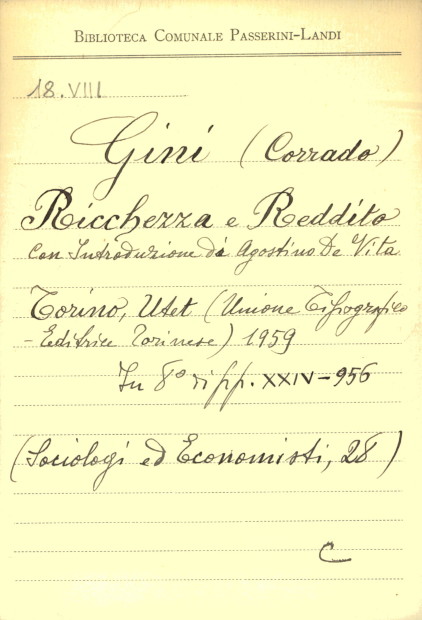 BIBLIOTECA COMUNALE PASSERINI-LANDI
18.VIII
Gini (Corrado)
Ricchezza e Reddito
Con Introduzione di Agostino De Vita
Torino, Utet (Unione Tipografico
- Editrice Torinese) 1959
In 8° di pp. XXIV-956
(Sociologi ed Economisti, 28)
C